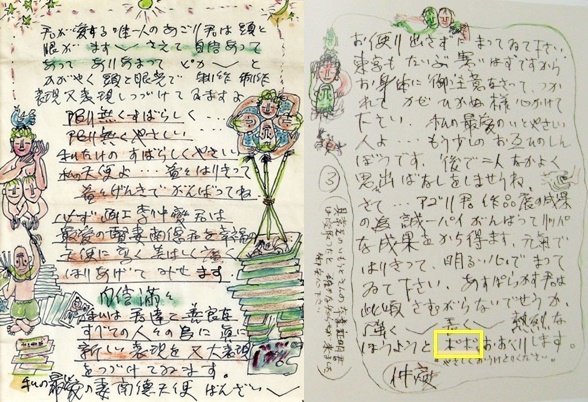 君が愛する唯一人のあごり君は頭と
眼がます〱さえて自信あって
あって ありあまって ピカ〱
かがやく頭と眼光で 制作 制作
表現又表現しつづけてゐますよ
限り無くすばらしく……
限り無くやさしい……
私だけの すばらしくやさしい
私の天使よ…益々はりきって
益々げんきでがんばってね
必ず 画工李仲燮君は
最愛の賢妻南徳君を幸福の
天使に高く美しく広く
はりあげて みせます
自信満々
僕は 君達と善良な
すべての人々の為に真に
新しい表現を 又 大表現
をつづけてゐます。
私の最愛の妻南徳天使 ばんざい〱
お便り出さずにまってゐて下さい。
東京もだいぶ寒いはずですから
お身体に御注意なさって、つか
れて かぜひかぬ様 心がけて
下さい。私の最愛のいとやさしい
人よ… もう少しのおゝひのしん
ぼうです。後で二人なかよく
思出ばなしをしませうね。
さて… アゴリ君 作品展の成果
の為 誠一パイがんばってリッパ
な成果をから得ます。元気で
はりきって、明るい心でまって
ゐて下さい。あすぱらがす君は
此頃 さむがらないでせうか
僕〱 長〱 熱烈な
ほうようと ポポ おおくりします。
やさしくおうけとりください。
仲燮
③